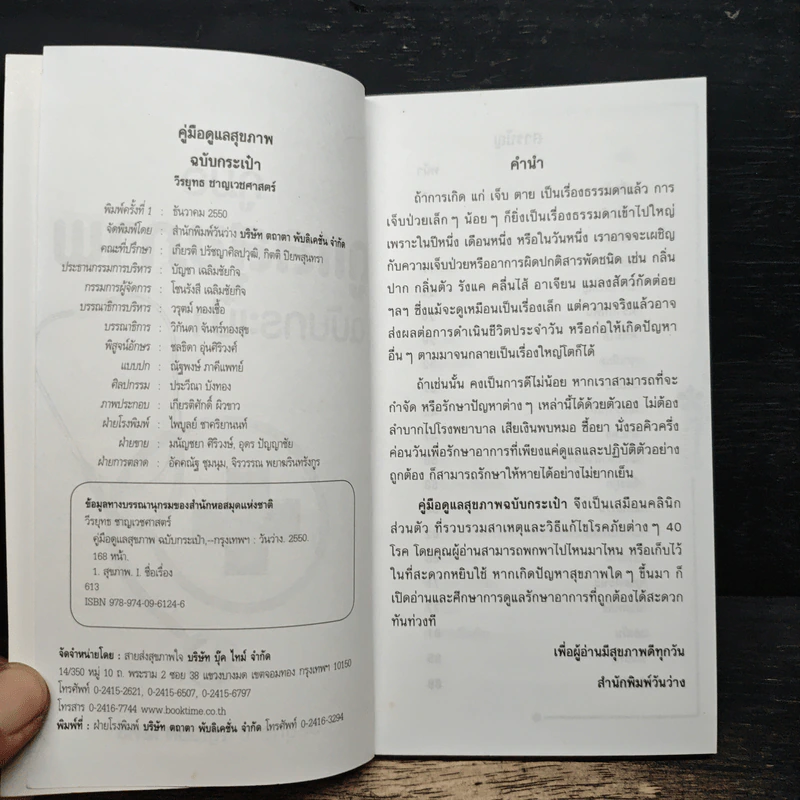 คู่มือดูแลสุขภาพ
ฉบับกระเป๋า
วีรยุทธ ชาญเวชศาสตร์
พิมพ์ครั้งที่ 1 : ธันวาคม 2550
จัดพิมพ์โดย : สำนักพิมพ์วันว่าง บริษัท ตถาตา พับลิเคชั่น จำกัด
คณะที่ปรึกษา : เกียรติ ปรัชญาศิลปวุฒิ, กิตติ ปิยพสุนทรา
ประธานกรรมการบริหาร : บัญชา เฉลิมชัยกิจ
กรรมการผู้จัดการ : โชนรังสี เฉลิมชัยกิจ
บรรณาธิการบริหาร : วรุตม์ ทองเชื้อ
บรรณาธิการ : วิกันดา จันทร์ทองสุข
พิสูจน์อักษร : ชลธิดา อุ่นศิริวงศ์
แบบปก : ณัฐพงษ์ ภาคีแพทย์
ศิลปกรรม : ประวีณา บังทอง
ภาพประกอบ : เกียรติศักดิ์ ผิวขาว
ฝ่ายโรงพิมพ์ : ไพบูลย์ ชาคริยานนท์
ฝ่ายขาย : มนัญชยา ศิริวงษ์, อุดร ปัญญาชัย
ฝ่ายการตลาด : อัคคณัฐ ชุมนุม, จิรวรรณ พยาฆรินทรังกูร
ข้อมูลทางบรรณานุกรมของสำนักหอสมุดแห่งชาติ
วีรยุทธ ชาญเวชศาสตร์
คู่มือดูแลสุขภาพ ฉบับกระเป๋า,--กรุงเทพฯ : วันว่าง. 2550.
168 หน้า.
1. สุขภาพ. I. ชื่อเรื่อง
613
ISBN 978-974-09-6124-6
จัดจำหน่ายโดย : สายส่งสุขภาพใจ บริษัท บุ๊ค ไทม์ จำกัด
14/350 หมู่ 10 ถ. พระราม 2 ซอย 38 แขวงบางมด เขตจอมทอง กรุงเทพฯ 10150
โทรศัพท์ 0-2415-2621, 0-2415-6507, 0-2415-6797
โทรสาร 0-2416-7744 www.booktime.co.th
พิมพ์ที่ : ฝ่ายโรงพิมพ์ บริษัท ตถาตา พับลิเคชั่น จำกัด โทรศัพท์ 0-2416-3294
คำนำ
ถ้าการเกิด แก่ เจ็บ ตาย เป็นเรื่องธรรมดาแล้ว การ
เจ็บป่วยเล็ก ๆ น้อย ๆ ก็ยิ่งเป็นเรื่องธรรมดาเข้าไปใหญ่
เพราะในปีหนึ่ง เดือนหนึ่ง หรือในวันหนึ่ง เราอาจจะเผชิญ
กับความเจ็บป่วยหรืออาการผิดปกติสารพัดชนิด เช่น กลิ่น
ปาก กลิ่นตัว รังแค คลื่นไส้ อาเจียน แมลงสัตว์กัดต่อย
ฯลฯ ซึ่งแม้จะดูเหมือนเป็นเรื่องเล็ก แต่ความจริงแล้วอาจ
ส่งผลต่อการดำเนินชีวิตประจำวัน หรือก่อให้เกิดปัญหา
อื่น ๆ ตามมาจนกลายเป็นเรื่องใหญ่โตก็ได้
ถ้าเช่นนั้น คงเป็นการดีไม่น้อย หากเราสามารถที่จะ
กำจัด หรือรักษาปัญหาต่าง ๆ เหล่านี้ได้ด้วยตัวเอง ไม่ต้อง
ลำบากไปโรงพยาบาล เสียเงินพบหมอ ซื้อยา นั่งรอคิวครึ่ง
ค่อนวันเพื่อรักษาอาการที่เพียงแค่ดูแลและปฏิบัติตัวอย่าง
ถูกต้อง ก็สามารถรักษาให้หายได้อย่างไม่ยากเย็น
คู่มือดูแลสุขภาพฉบับกระเป๋า จึงเป็นเสมือนคลินิก
ส่วนตัว ที่รวบรวมสาเหตุและวิธีแก้ไขโรคภัยต่างๆ 40
โรค โดยคุณผู้อ่านสามารถพกพาไปไหนมาไหน หรือเก็บไว้
ในที่สะดวกหยิบใช้ หากเกิดปัญหาสุขภาพใด ๆ ขึ้นมา ก็
เปิดอ่านและศึกษาการดูแลรักษาอาการที่ถูกต้องได้สะดวก
ทันท่วงที
เพื่อผู้อ่านมีสุขภาพดีทุกวัน
สำนักพิมพ์วันว่าง